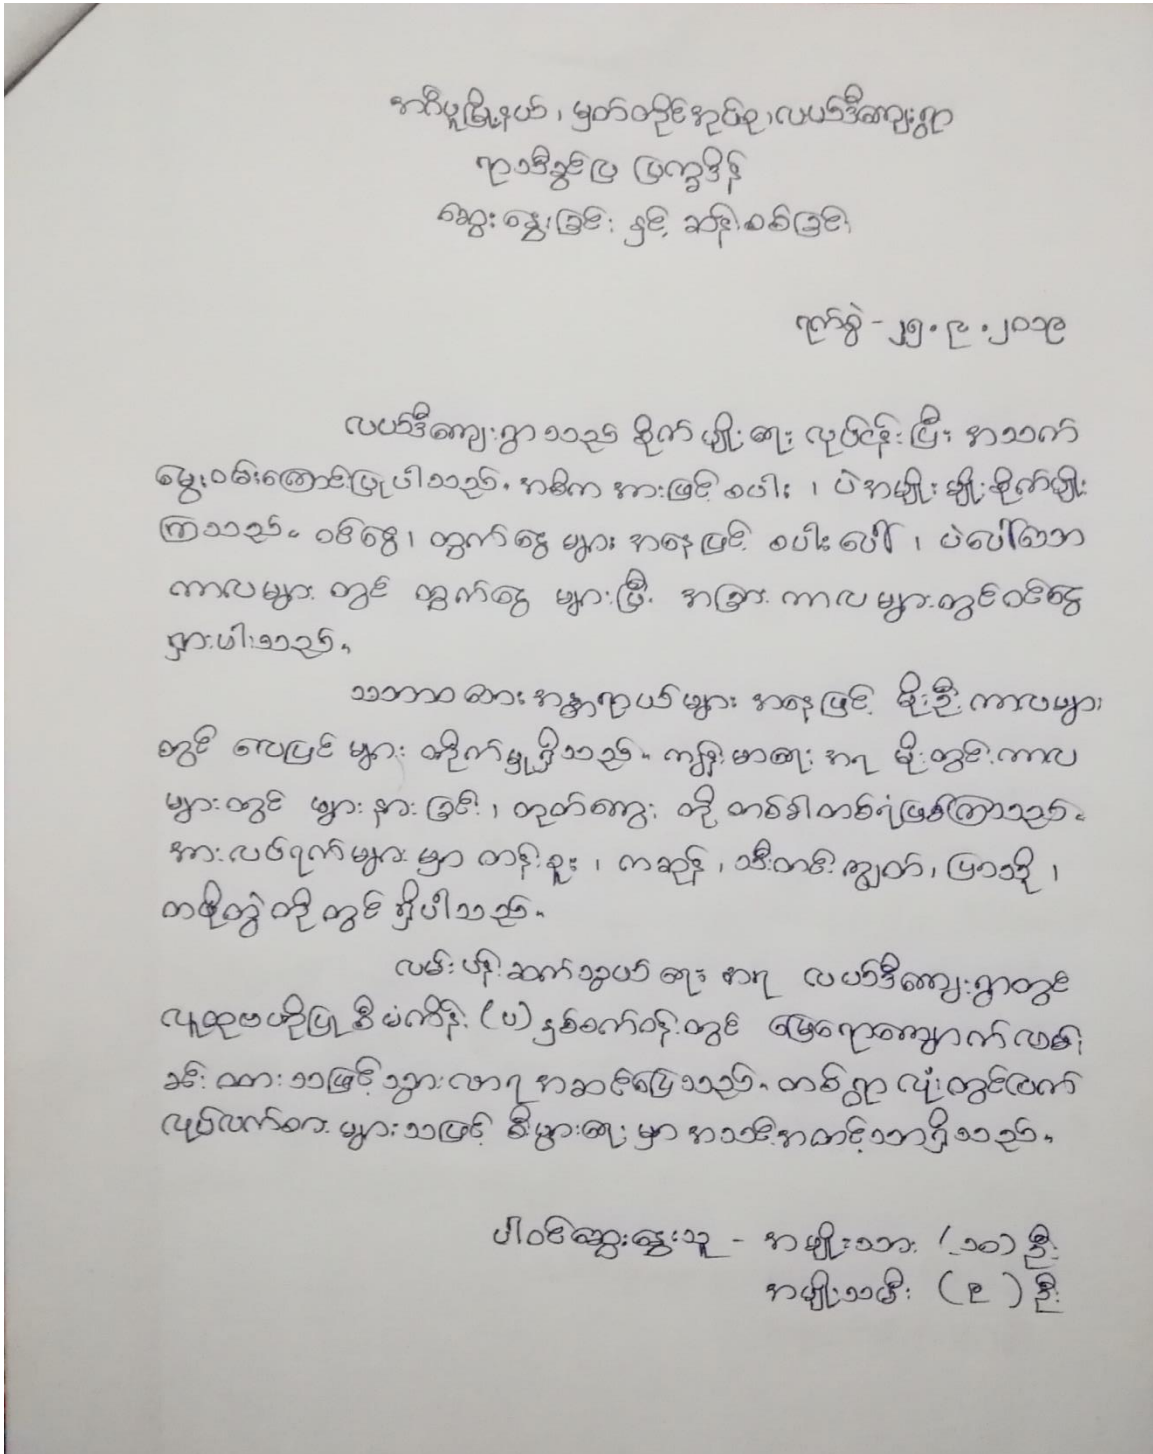 အင်္ဂပူမြို့နယ်၊ မှတ်တိုင်အုပ်စု၊ လယ်ဒီကျေးရွာ
ရာသီခွင်ပြ ပြက္ခဒိန်
ဆွေးနွေးခြင်း နှင့် ဆန်းစစ်ခြင်း
ရက်စွဲ - ၂၅.၉.၂၀၁၉
လယ်ဒီကျေးရွာသည် စိုက်ပျိုးရေး လုပ်ငန်းပြီး အသက်
မွေးဝမ်းကြောင်းပြုပါသည်။ အဓိက အားဖြင့် စပါး ၊ ပဲအမျိုးမျိုးစိုက်ပျိုး
ကြသည်။ ဝင်ငွေ၊ ထွက်ငွေ များ အနေဖြင့် စပါးပေါ် ၊ ပဲပေါ်သော
ကာလများ တွင် ထွက်ငွေ များပြီး အခြား ကာလ များတွင်ဝင်ငွေ
ရှားပါးသည်။
သဘာဝဘေး အန္တရာယ်များ အနေဖြင့် မိုးဦးကာလများ
တွင် လေပြင်းများ တိုက်မှုရှိသည်။ ကျန်းမာရေး အရ မိုးတွင်းကာလ
များတွင် ဖျားနာခြင်း ၊ တုတ်ကွေး တို့ တစ်ခါတစ်ရံဖြစ်ကြသည်။
အားလပ်ရက်များ မှာ တန်ခူး ၊ ကဆုန် ၊ သီတင်းကျွတ် ၊ ပြာသို ၊
တပို့တွဲ တို့တွင် ရှိပါသည်။
လမ်းပန်းဆက်သွယ်ရေး အရ လယ်ဒီကျေးရွာတွင်
လူထုဗဟိုပြု စီမံကိန်း (ပ) နှစ်စက်ဝန်းတွင် မြေရောကျောက်လမ်း
ခင်းထားသဖြင့် သွားလာရ အဆင်ပြေသည်။ တစ်ရွာလုံးတွင်လက်
လုပ်လက်စား များသဖြင့် စီးပွားရေး မှာ အသင့်အတင့်သာရှိသည်။
ပါဝင်ဆွေးနွေးသူ - အမျိုးသား (၁၀) ဦး
အမျိုးသမီး (၉) ဦး